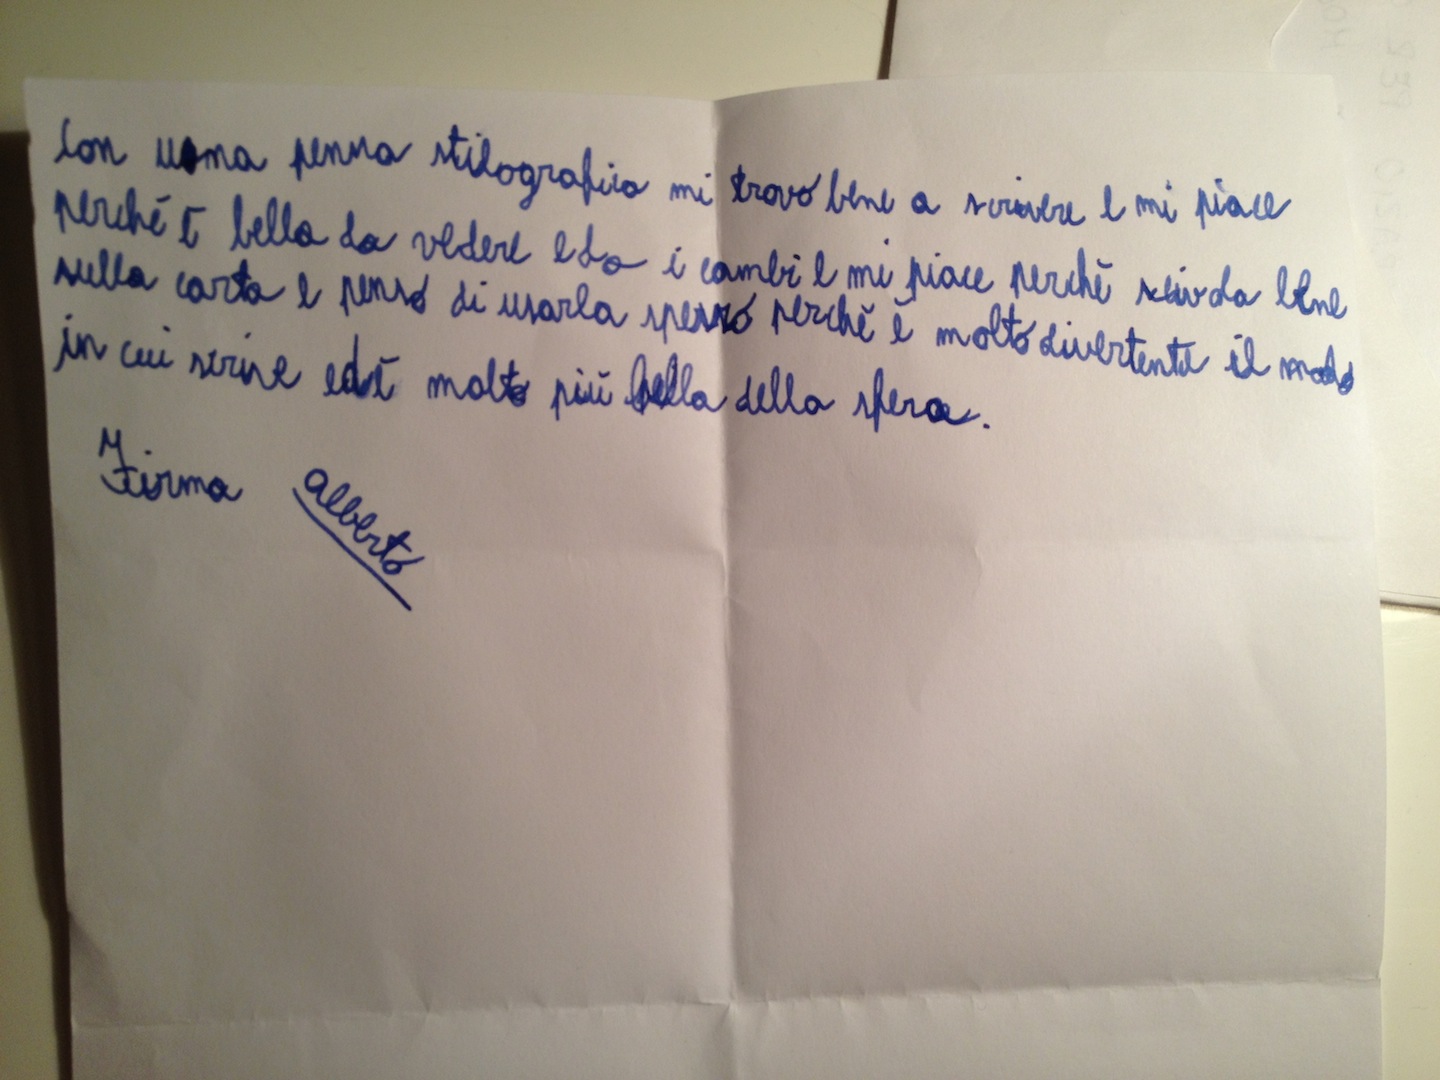 Con una penna stilografica mi trovo bene a scrivere e mi piace
perché è bella da vedere e da i cambi e mi piace perchè scivola bene
sulla carta e penso di usarla spesso perchè è molto divertente il modo
in cui scrive ed è molto più bella della sfera.
Firma Alberto